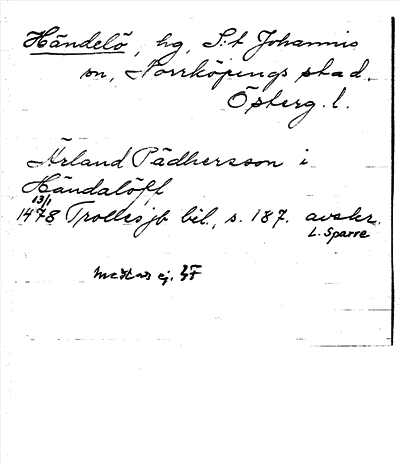 Händelö, hg, S:t Johannis
sn, Norrköpings stad.
Österg. l.
Ärland Pädhersson i
Händalöffl
13/1
1478 Trolles jb bil., s. 187. avskr.
L. Sparre
ej.